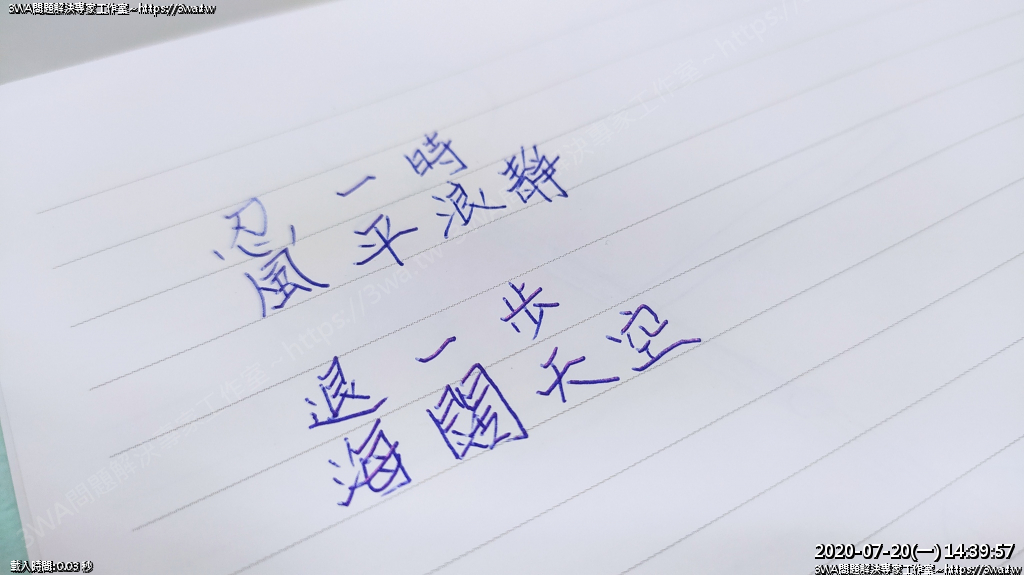 3WA問題解決專家工作室~https://3wa.tw
忍一時
風平浪靜
退一步
海闊天空
載入時間:0.03 秒
2020-07-20(一) 14:39:57
3WA問題解決專家工作室~https://3wa.tw
3WA問題解決專家工作室~https://3wa.tw